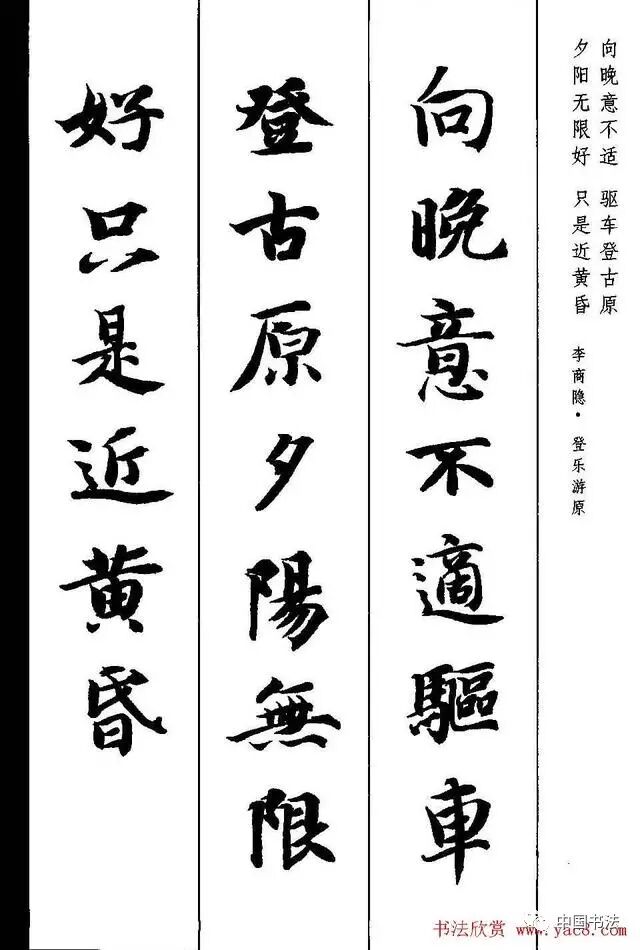 向晚意不适 驱车登古原
夕阳无限好 只是近黄昏
李商隐·登乐游原
向晚意不適驅車
登古原夕陽無限
好只是近黄昏
中国书法
书法欣赏 www.yac8.com